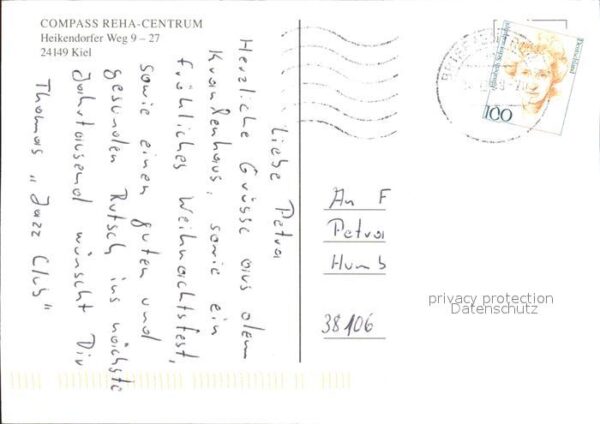 COMPASS REHA-CENTRUM
Heikendorfer Weg 9 – 27
24149 Kiel
Liebe Petra
Herzliche Grüsse aus dem
Krankenhaus, sowie ein
fröhliches Weihnachtsfest,
sowie einen guten und
gesunden Rutsch ins nächste
Jahrtausend wünscht Dir
Thomas „Jazz Club"
Deutschland
100
An F
Petra
Humb
38106
privacy protection
Datenschutz